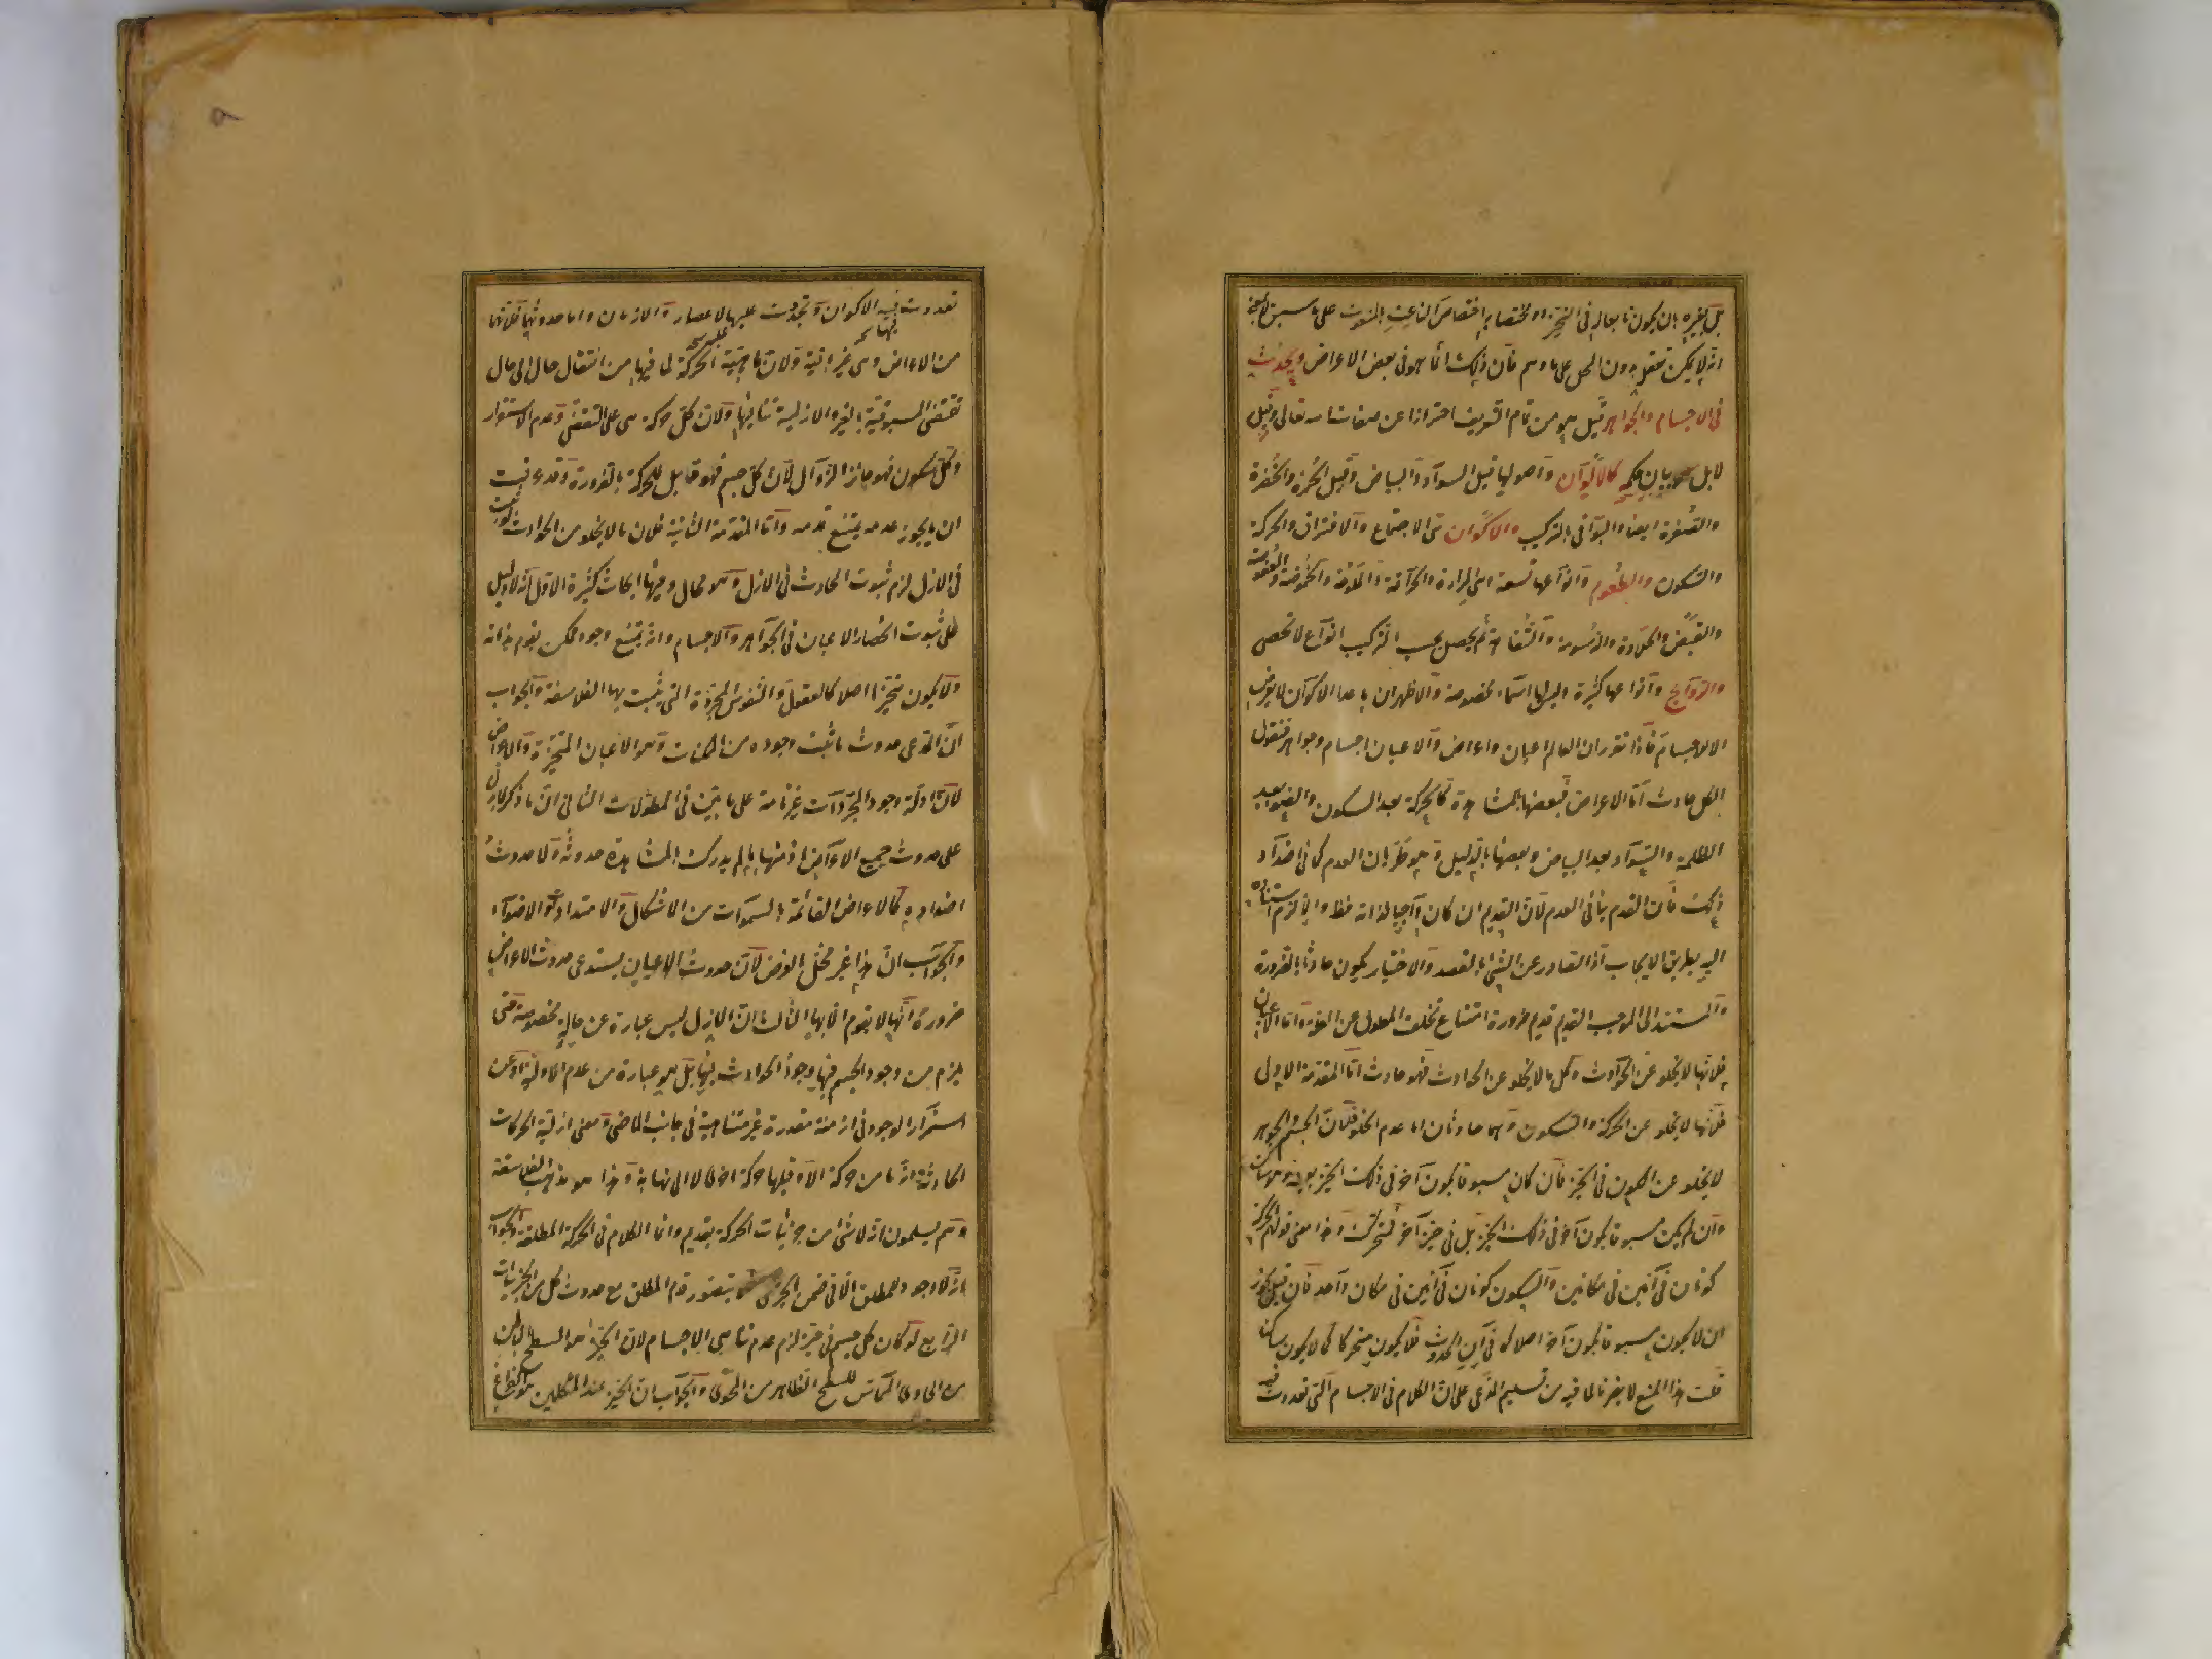 بل بغيره بان يكون تابعا له في التحيز او مختصا به اختصاص الناعت بالمنعوت على ما سبق لا بمعنى
انه لا يمكن تعقله بدون المحل على ما وهم فان ذلك انما هو في بعض الاعراض ويحدث
في الاجسام والجواهر قيل هو من تمام التعريف احترازا عن صفات الله تعالى وقيل
لا بل بيان حكمه كالالوان واصولها قيل السواد والبياض وقيل الحمرة والخضرة
والصفرة ايضا والبواقي بالتركيب والاكوان هي الاجتماع والافتراق والحركة
والسكون والطعوم وانواعها تسعة وهي المرارة والحرافة والملوحة والحموضة والعفوصة
والقبض والحلاوة والدسومة والتفاهة ثم يحصل بحسب التركيب انواع لا تحصى
والروائح وانواعها كثيرة وليس لها اسماء مخصوصة والاظهر ان ما عدا الاكوان لا يعرض
الا للاجسام فاذا تقرر ان العالم اعيان واعراض والاعيان اجسام وجواهر فنقول
الكل حادث اما الاعراض فبعضها بالمشاهدة كالحركة بعد السكون والضوء بعد
الظلمة والسواد بعد البياض وبعضها بالدليل وهو طريان العدم كما في اضداد
ذلك فان القدم ينافي العدم لان القديم ان كان واجبا لذاته فظ والا لزم استناده
اليه بطريق الايجاب اذ الصادر عن الشئ بالقصد والاختيار يكون حادثا بالضرورة
والمستند الى الموجب القديم قديم ضرورة امتناع تخلف المعلول عن العلة واما الاعيان
فلانها لا يخلو عن الحوادث وكل ما لا يخلو عن الحوادث فهو حادث اما المقدمة الاولى
فلانها لا يخلو عن الحركة والسكون وهما حادثان اما عدم الخلو فلان الجسم والجوهر
لا يخلو عن الكون في الحيز فان كان مسبوقا بكون آخر في ذلك الحيز بعينه فهو ساكن
وان لم يكن مسبوقا بكون آخر في ذلك الحيز بل في حيز آخر فمتحرك وهذا معنى قولهم الحركة
كونان في آنين في مكانين والسكون كونان في آنين في مكان واحد فان قيل يجوز
ان لا يكون مسبوقا بكون آخر اصلا كما في آن الحدوث فلا يكون متحركا كما لا يكون ساكنا
قلت هذا المنع لا يضرنا لما فيه من تسليم المدعى على ان الكلام في الاجسام التي تعددت فيه
تعددت فيه الاكوان وتجددت عليها الاعصار والازمان واما حدوثهما فلانهما
فيها صح
من الاعراض وهى غير باقية ولان ماهية الحركة لما فيها من انتقال حال الى حال
تقتضى المسبوقية بالغير والازلية تنافيها ولان كل حركة هى على التقضى وعدم الاستقرار
وكل سكون فهو جائز الزوال لان كل جسم فهو قابل للحركة بالضرورة وقد عرفت
ان ما يجوز عدمه يمتنع قدمه واما المقدمة الثانية فلان ما لا يخلو عن الحوادث لو ثبت
في الازل لزم ثبوت الحادث في الازل وهو محال وههنا ابحاث كثيرة الاول انه لا دليل
على ثبوت انحصار الاعيان في الجواهر والاجسام وانه يمتنع وجود ممكن يقوم بذاته
ولا يكون متحيزا اصلا كالعقول والنفوس المجردة التي يثبت بها الفلاسفة والجواب
ان المدعى حدوث ما ثبت وجوده من الممكنات وهو الاعيان المتحيزة والاعراض
لان ادلة وجود المجردات غير تامة على ما بين في المطولات الثانى ان ما ذكر لا يدل
على حدوث جميع الاعراض اذ منها ما لم يدرك بالمشاهدة حدوثه ولا حدوث
اضداده كالاعراض القائمة بالسموات من الاشكال والامتدادات والاضواء
والجواب ان هذا غير مخل بالغرض لان حدوث الاعيان يستدعى حدوث الاعراض
ضرورة انها لا يقوم الا بها الثالث ان الازل ليس عبارة عن حالة مخصوصة حتى
يلزم من وجود الجسم فيها وجود الحوادث فيها بل هو عبارة عن عدم الاولية او عن
استمرار الوجود في ازمنة مقدرة غير متناهية في جانب الماضى ومعنى ازلية الحركات
الحادثة انه ما من حركة الا وقبلها حركة اخرى لا الى نهاية وهذا هو مذهب الفلاسفة
وهم يسلمون انه لا شئ من جزئيات الحركة بقديم وانما الكلام في الحركة المطلقة والجواب
انه لا وجود للمطلق الا في ضمن الجزئى يتصور قدم المطلق مع حدوث كل من الجزئيات
الرابع لو كان كل جسم في حيز لزم عدم تناهى الاجسام لان الحيز هو السطح الباطن
من الحاوى المماس للسطح الظاهر من المحوى والجواب ان الحيز عند المتكلمين هو الفراغ